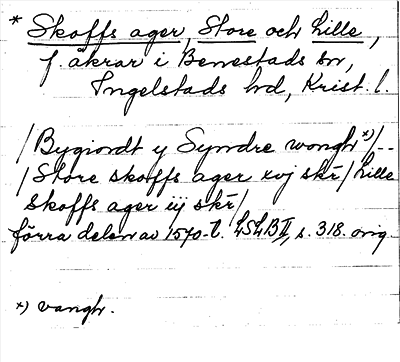 * Skoffs ager, Store och Lille,
f. åkrar i Benestads sn,
Ingelstads hd, Krist. l.
/Bygiordt y Syndre wongh *)/--
/Store skoffs ager xvj skr/ Lille
skoffs ager iij skr/
förra delen av 1570-t. LSLB II, s. 318. orig.
*) vangh.